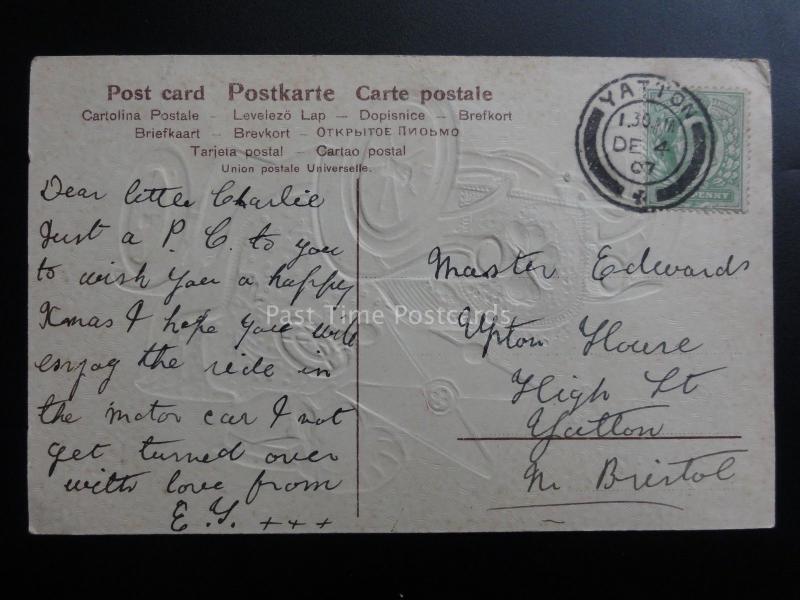 Post card Postkarte Carte postale
Cartolina Postale – Levelező Lap – Dopisnice – Brefkort
Briefkaart – Brevkort – ОТКРЫТОЕ ПИСЬМО
Tarjeta postal – Cartao postal
Union postale Universelle.
YATTON
1.30 PM
DE 4
07
PENNY
Dear little Charlie
Just a P. C. to you
to wish you a happy
Xmas I hope you will
enjoy the ride in
the motor car & not
get turned over
with love from
E. Y. + + +
Master Edwards
Upton House
High St
Yatton
Nr Bristol
Past Time Postcards